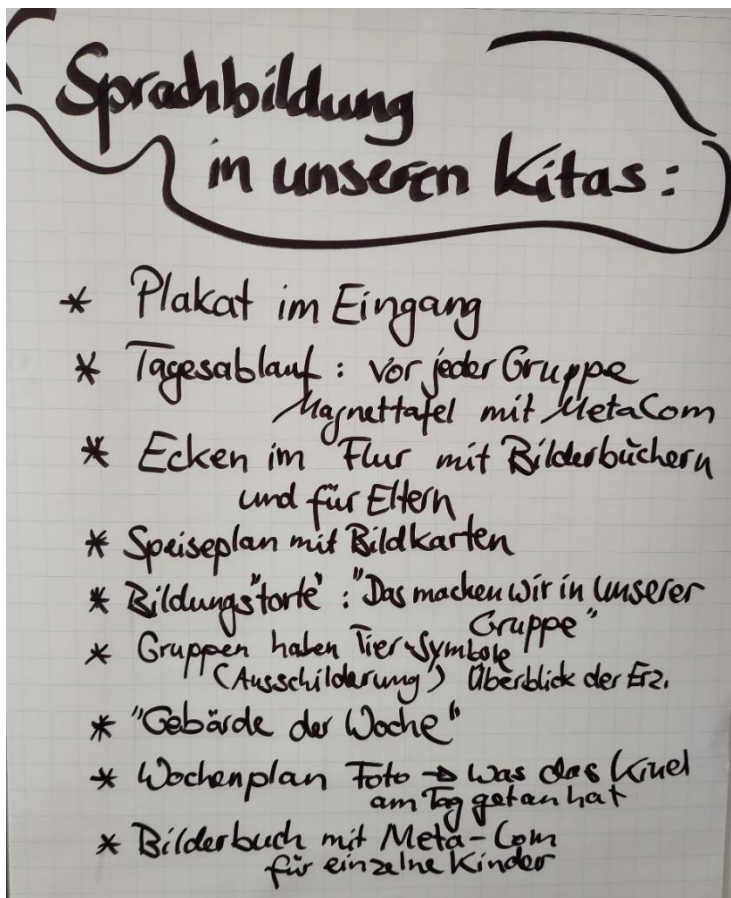 Sprachbildung
in unseren Kitas:
* Plakat im Eingang
* Tagesablauf: vor jeder Gruppe
Magnettafel mit MetaCom
* Ecken im Flur mit Bilderbüchern
und für Eltern
* Speiseplan mit Bildkarten
* Bildungs"torte": "Das machen wir in unserer
Gruppe"
* Gruppen haben Tier-Symbole
(Ausschilderung) Überblick der Erz.
* "Gebärde der Woche"
* Wochenplan Foto → Was das Kind
am Tag getan hat
* Bilderbuch mit Meta-Com
für einzelne Kinder